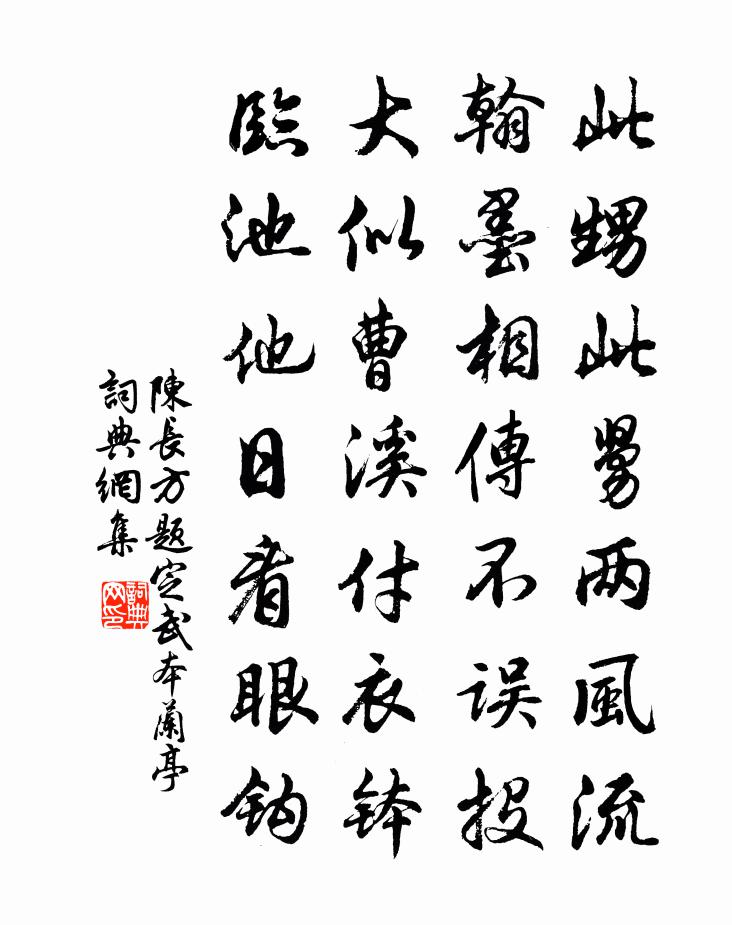 此甥此舅两風流
翰墨相傳不误投
大似曹溪付衣钵
臨池他日看眼鈎
陳長方題定武本蘭亭
詞典網集
詞典网印